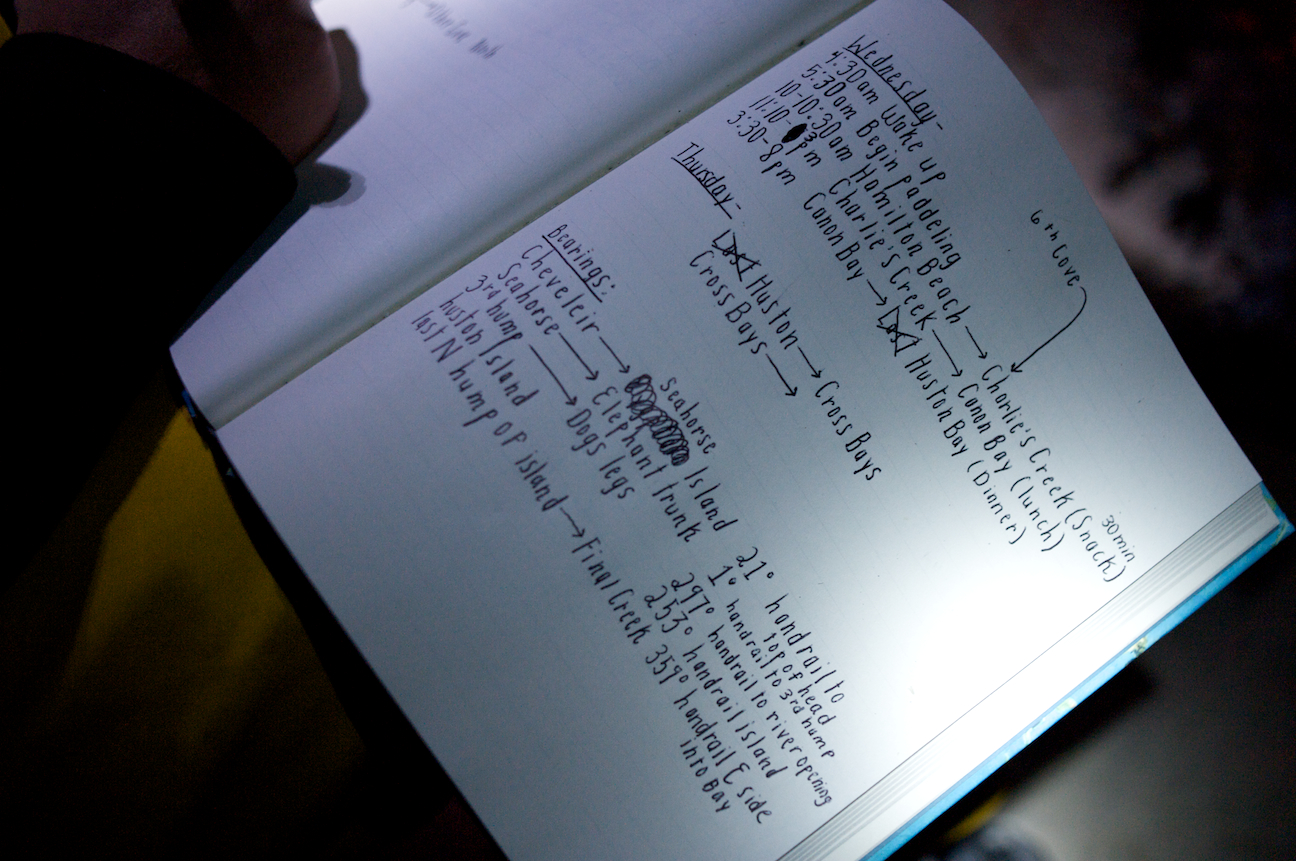 Wednesday-
4:30am Wake up
5:30am Begin paddeling
10-10:30am Hamilton Beach → Charlie's Creek (Snack) 30min
6th Cove
11:10-3pm Charlie's Creek → Canon Bay (lunch)
3:30-8pm Canon Bay → Huston Bay (Dinner)
Thursday-
Huston → Cross Bays
Cross Bays →
Bearings:
Cheveleir → Seahorse Island 21° handrail to top of head
Seahorse → Elephant trunk 1° handrail to 3rd hump
3rd hump → Dogs legs 297° handrail to river opening
huston Island 253° handrail island
last N hump of island → Final Creek 359° handrail E side into Bay